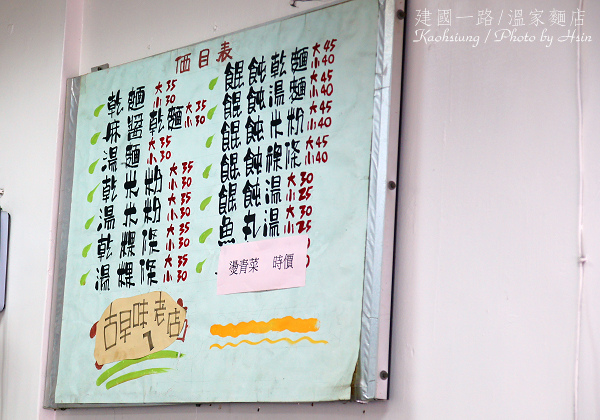 建國一路/溫家麵店
Kaohsiung / Photo by Hsin
価目表
乾麵 大35 小30
麻醬乾麵 大35 小30
湯麵 大35 小30
乾米粉 大35 小30
湯米粉 大35 小30
乾粿條 大35 小30
湯粿條 大35 小30
餛飩乾麵 大45 小40
餛飩湯麵 大45 小40
餛飩米粉 大45 小40
餛飩粿條 大45 小40
餛飩湯 大30 小25
魚丸湯 大30 小25
燙青菜 時價
古早味老店